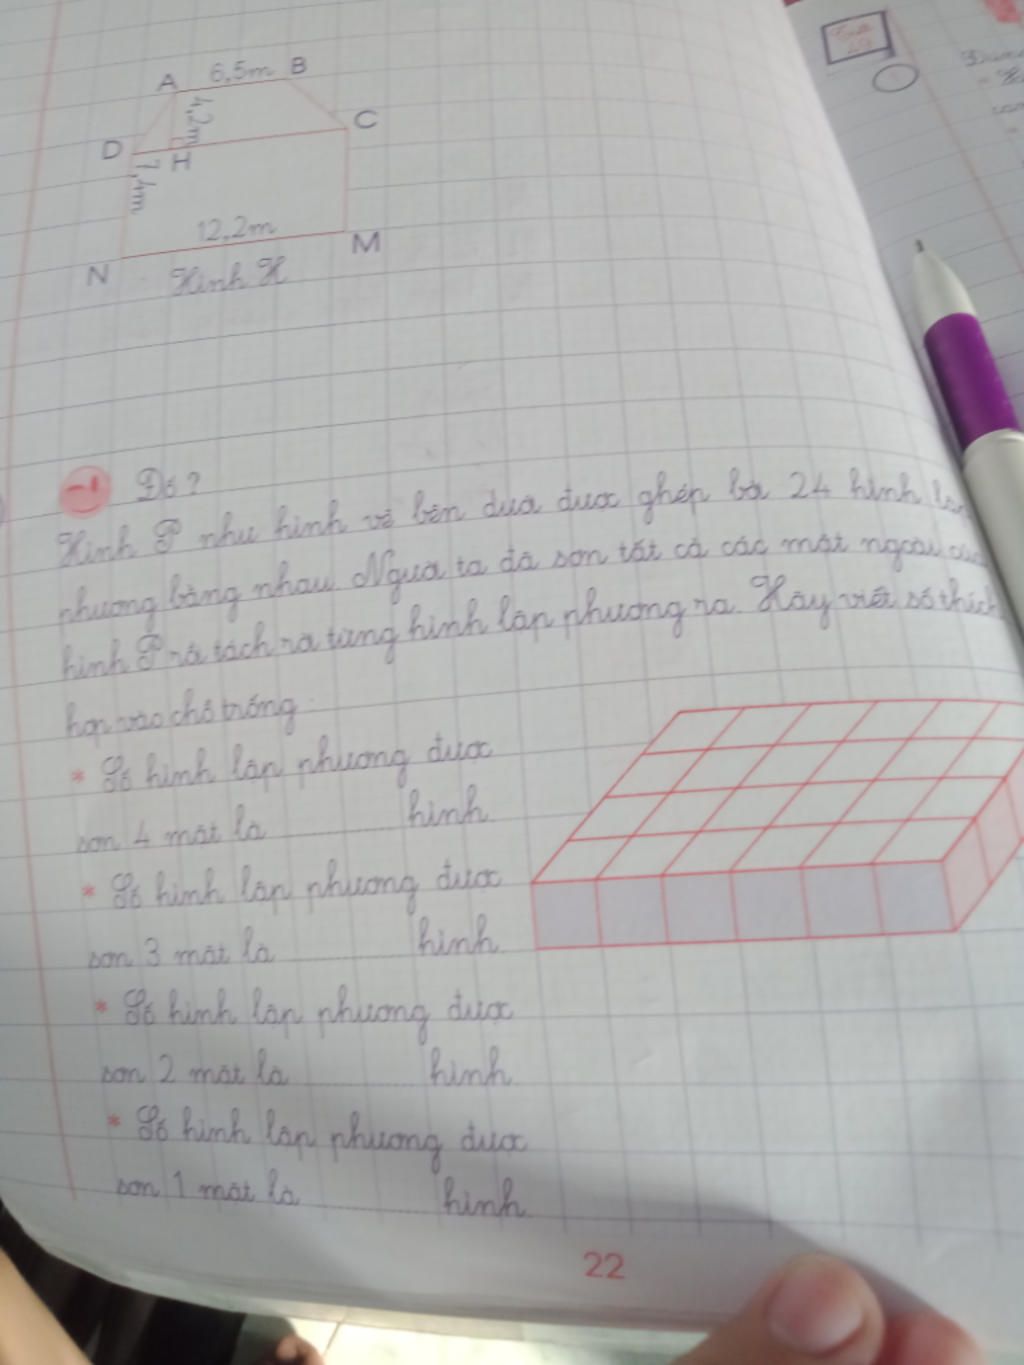 A 6,5m B
4,2m
D H C
7,4m
12,2m
N M
Hình H
Đố?
Hình P như hình vẽ bên dưới được ghép bởi 24 hình
phương bằng nhau. Người ta đã sơn tất cả các mặt ngoài của
hình P rồi tách ra từng hình lập phương ra. Hãy viết số thích
hợp vào chỗ trống:
* Số hình lập phương được
sơn 4 mặt là ............ hình.
* Số hình lập phương được
sơn 3 mặt là ............ hình.
* Số hình lập phương được
sơn 2 mặt là ............ hình.
* Số hình lập phương được
sơn 1 mặt là ............ hình.
22